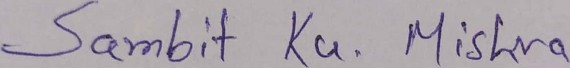 Sambit Ku. Mishra